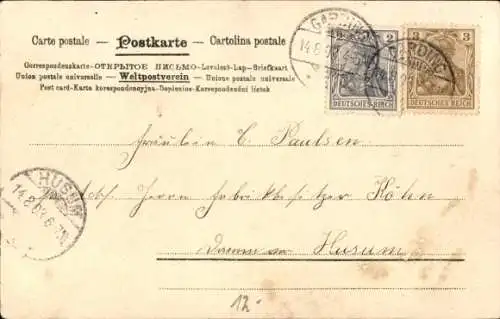 Carte postale — Postkarte — Cartolina postale
Correspondenzkarte-ОТКРЫТОЕ ПИСЬМО-Levelező-Lap-Briefkaart
Union postale universelle — Weltpostverein — Unione postale universale
Post card-Karta korespondencyjna-Dopisnice-Korespondenční lístek
GARDING
14.8.03
2
DEUTSCHES REICH
3
DEUTSCHES REICH
Fräulein C Paulsen
Adr. Herrn Fabrikbesitzer Köhn
Husum
HUSUM
14.8.03
12